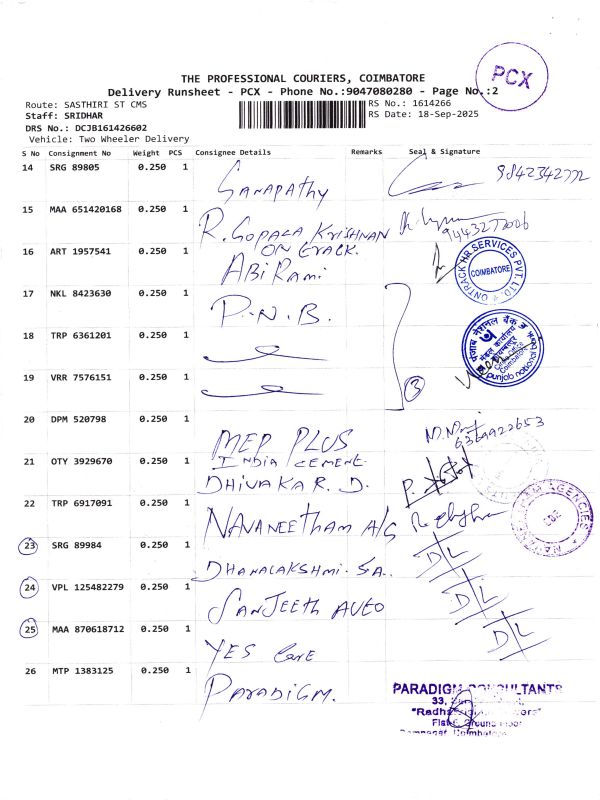 PCX
THE PROFESSIONAL COURIERS, COIMBATORE
Delivery Runsheet - PCX - Phone No.:9047080280 - Page No.:2
Route: SASTHIRI ST CMS
RS No.: 1614266
Staff: SRIDHAR
RS Date: 18-Sep-2025
DRS No.: DCJB161426602
Vehicle: Two Wheeler Delivery
S No Consignment No Weight PCS Consignee Details Remarks Seal & Signature
14 SRG 89805 0.250 1 Ganapathy 9842342772
15 MAA 651420168 0.250 1 R. Gopala Krishnan 9443277006
16 ART 1957541 0.250 1 ON Track. Abi Rami
ONTRACK HR SERVICES PVT. LTD. COIMBATORE
17 NKL 8423630 0.250 1 P.N.B.
18 TRP 6361201 0.250 1
पंजाब नैशनल बैंक
मंडल कार्यालय
Coimbatore
punjab national
19 VRR 7576151 0.250 1 3
20 DPM 520798 0.250 1 MEP PLUS 6369922653
21 OTY 3929670 0.250 1 INDIA CEMENT
DHIVAKAR. D.
22 TRP 6917091 0.250 1 NAVANEETHAM A/G
AGENCIES
23 SRG 89984 0.250 1 DHANALAKSHMI. SA. D/L
24 VPL 125482279 0.250 1 SANJEETH AUTO D/L
25 MAA 870618712 0.250 1 YES Care D/L
26 MTP 1383125 0.250 1 PARADIGM.
PARADIGM CONSULTANTS
33,
"Radha
Ground Floor
Coimbatore